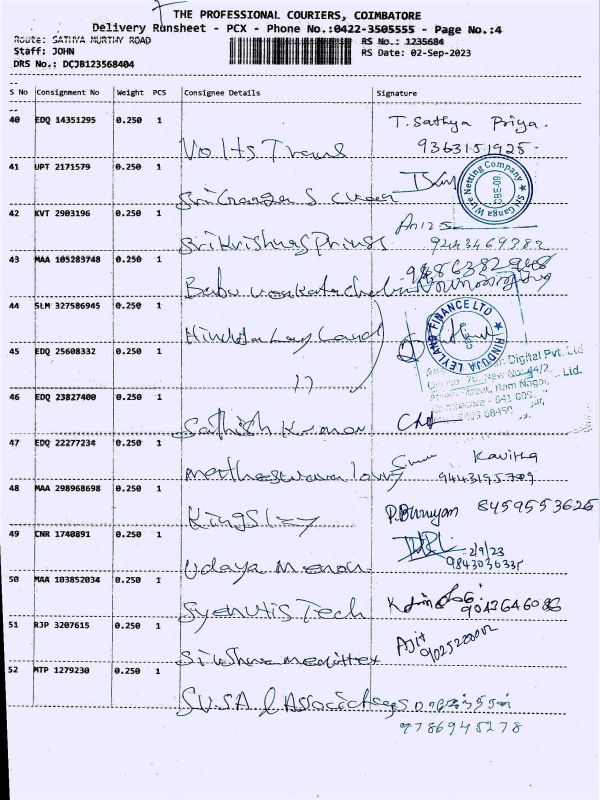 THE PROFESSIONAL COURIERS, COIMBATORE
Delivery Runsheet - PCX - Phone No.:0422-3505555 - Page No.:4
Route: SATHYA MURTHY ROAD
RS No.: 1235684
Staff: JOHN
RS Date: 02-Sep-2023
DRS No.: DCJB123568404
S No Consignment No Weight PCS Consignee Details Signature
40 EDQ 14351295 0.250 1 T. Sathya Priya.
Volts Trans 9363151925.
41 UPT 2171579 0.250 1
Sri Ganga S
Sri Ganga Wire Netting Company
CBE-09
42 KVT 2903196 0.250 1
Sri Krishnas Prints 9443469282
43 MAA 105283748 0.250 1
Babu Venkatachalam
44 SLM 327586945 0.250 1
Hinduja Leyland
HINDUJA LEYLAND FINANCE LTD
45 EDQ 25608332 0.250 1
11
Digital Pvt. Ltd
New No: 44/2,
Street, Ram Nagar,
641 009
46 EDQ 23827400 0.250 1
Sathish Kumar
47 EDQ 22277234 0.250 1 Kavitha
48 MAA 298968698 0.250 1 8459553626
Kingsley
49 CNR 1740891 0.250 1 2/9/23
Udaya Menon 9843036335
50 MAA 103852034 0.250 1 9042646086
Tech
51 RJP 3207615 0.250 1 Ajit
52 MTP 1279230 0.250 1
SVSA & Associates
9786945278